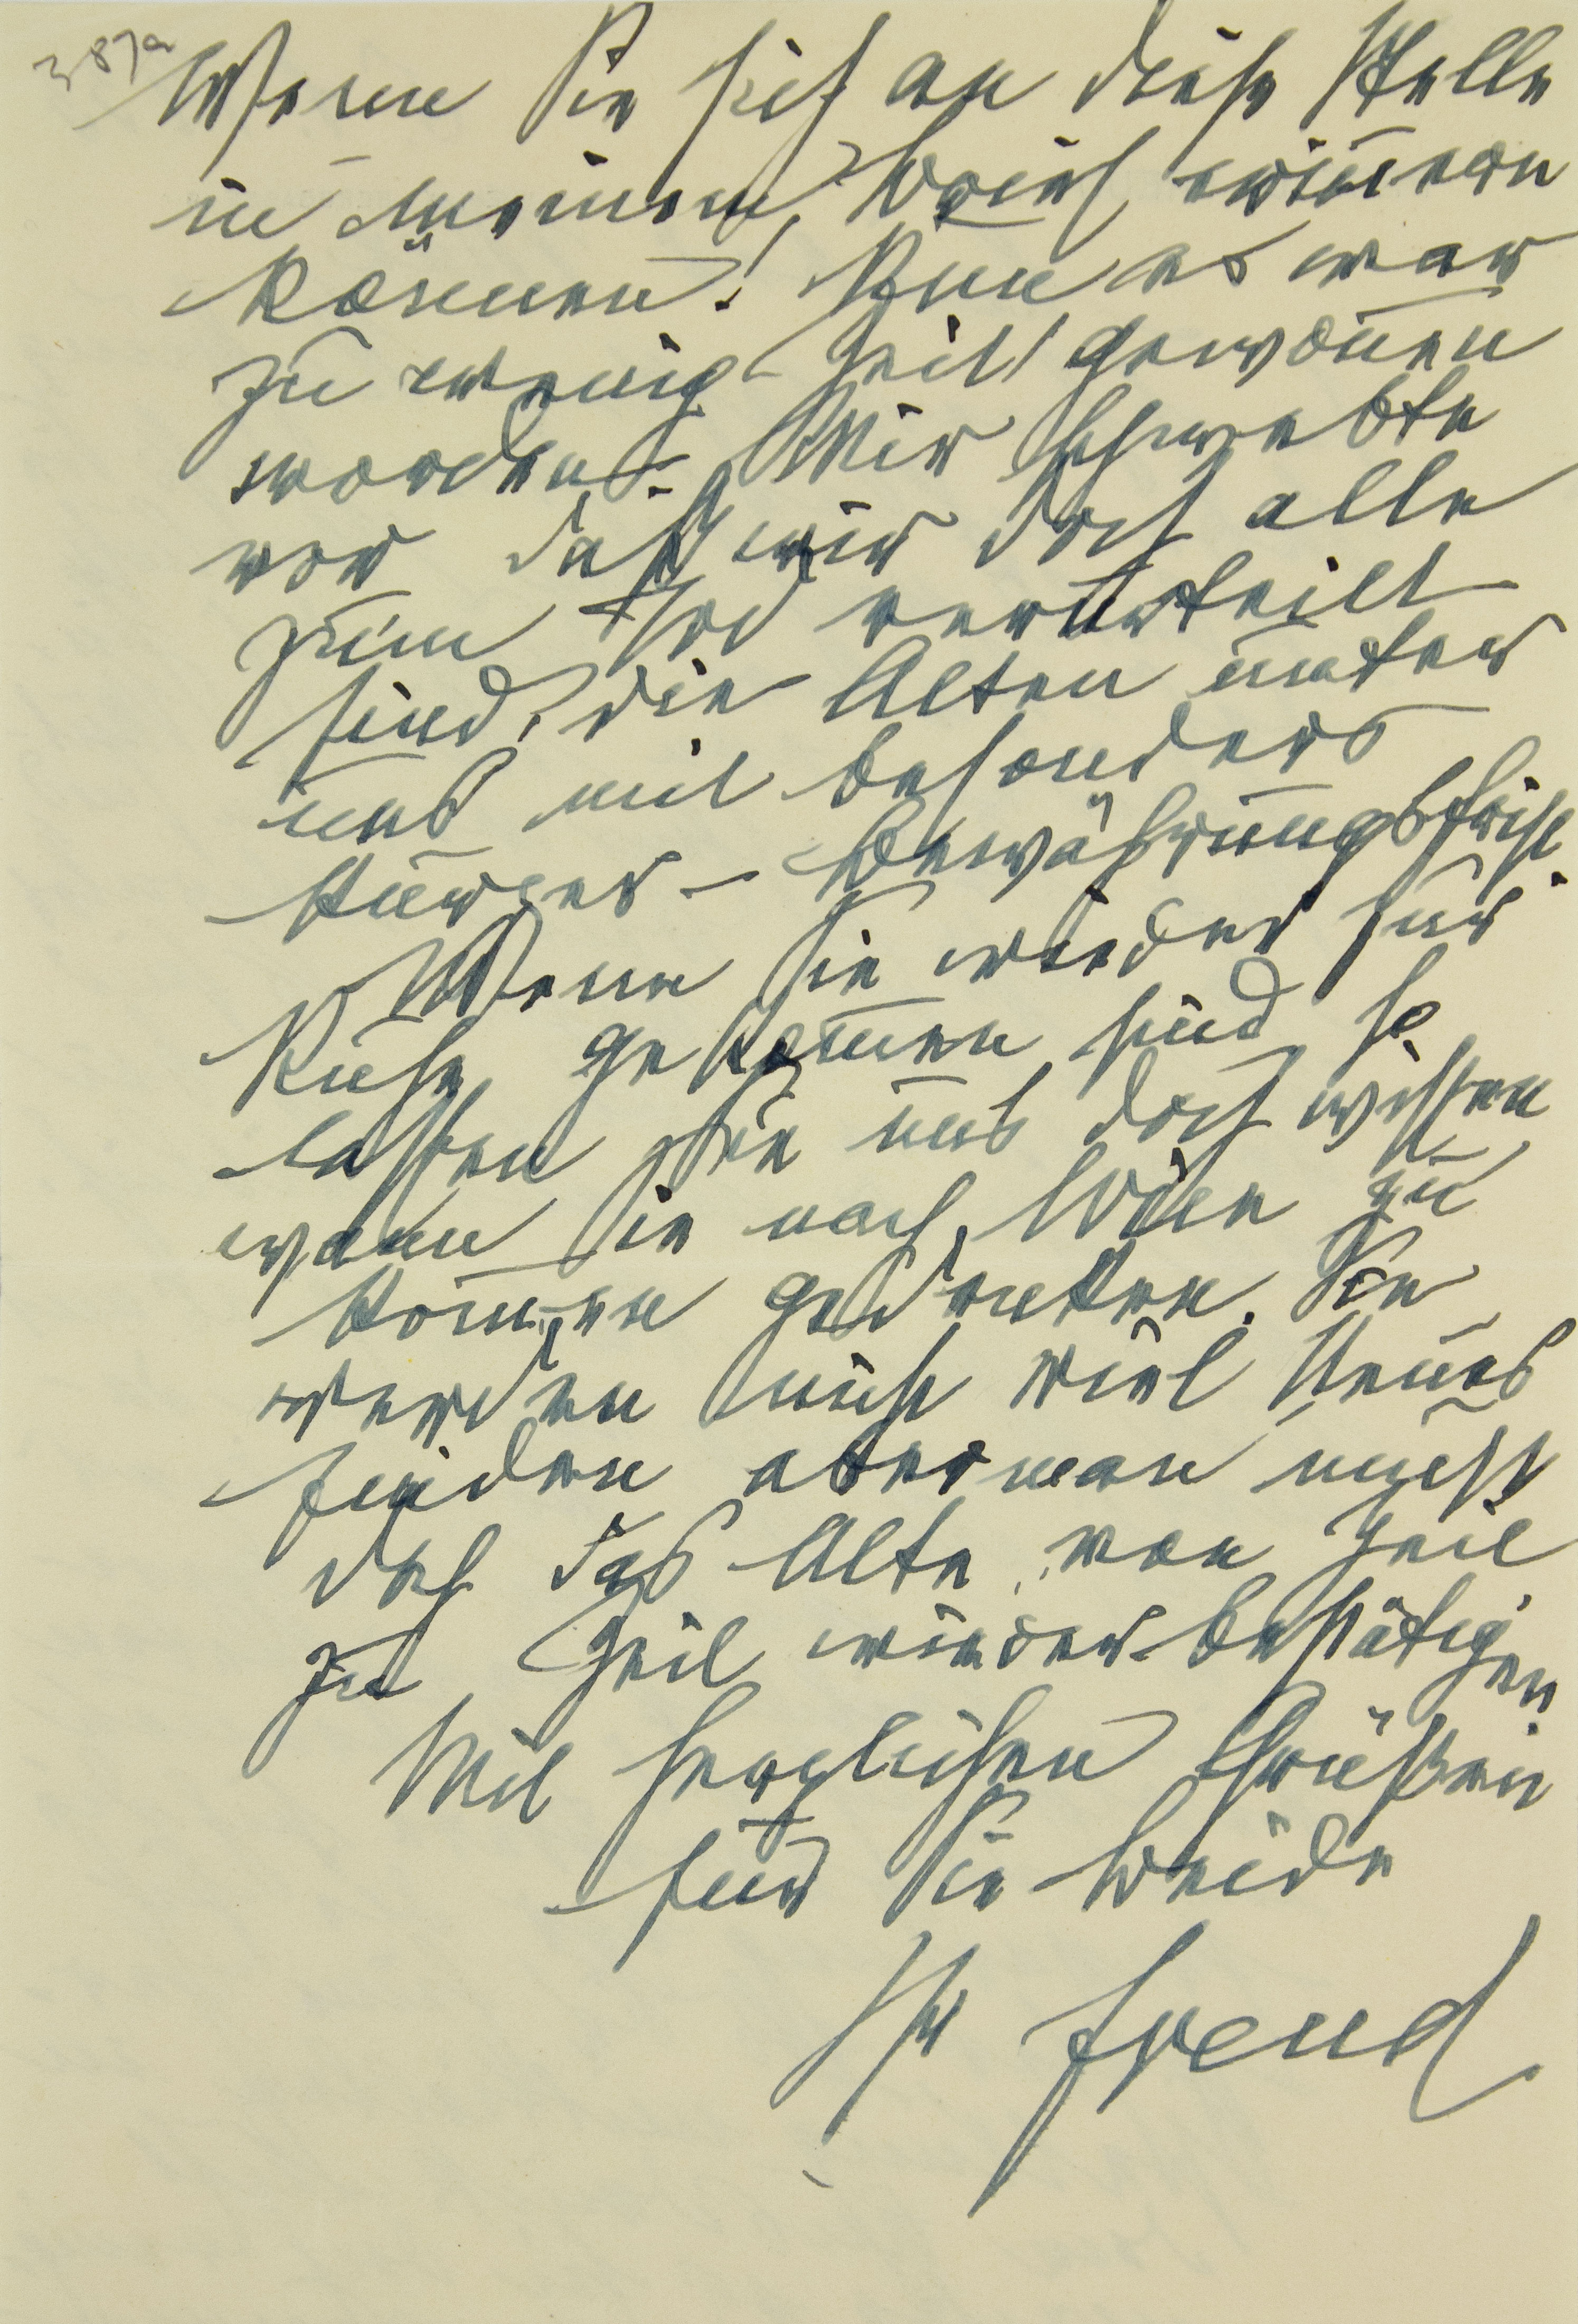 387a
Wenn Sie sich an diese Stelle
in meinem Brief erinnern
können! Nun es war
zu wenig Zeit gewonnen
worden. Mir schwebte
vor daß wir doch alle
zum Tod verurteilt
sind, die Alten unter
uns mit besonders
kurzer – Bewährungsfrist.
Wenn Sie wieder zur
Ruhe gekommen sind, so
lassen Sie uns doch wissen
wann Sie nach Wien zu
kommen gedenken. Sie
werden nicht viel Neues
finden aber man muß
doch das Alte von Zeit
zu Zeit wieder bestätigen.
Mit herzlichen Grüßen
für Sie beide
Ihr Freud